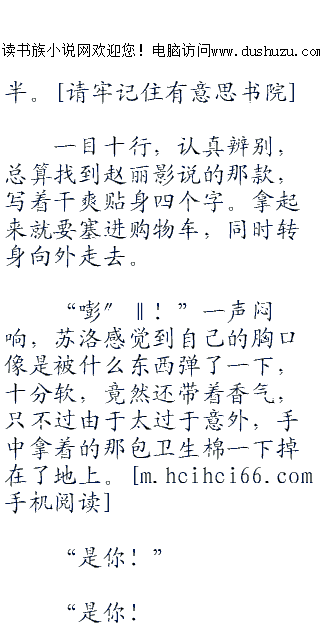 读书族小说网欢迎您！电脑访问www.dushuzu.com
半。[请牢记住有意思书院]
一目十行，认真辨别，
总算找到赵丽影说的那款，
写着干爽贴身四个字。拿起
来就要塞进购物车，同时转
身向外走去。
“嘭”‖！”一声闷
响，苏洛感觉到自己的胸口
像是被什么东西弹了一下，
十分软，竟然还带着香气，
只不过由于太过于意外，手
中拿着的那包卫生棉一下掉
在了地上。[m.hcihci66.com
手机阅读]
“是你！”
“是你！